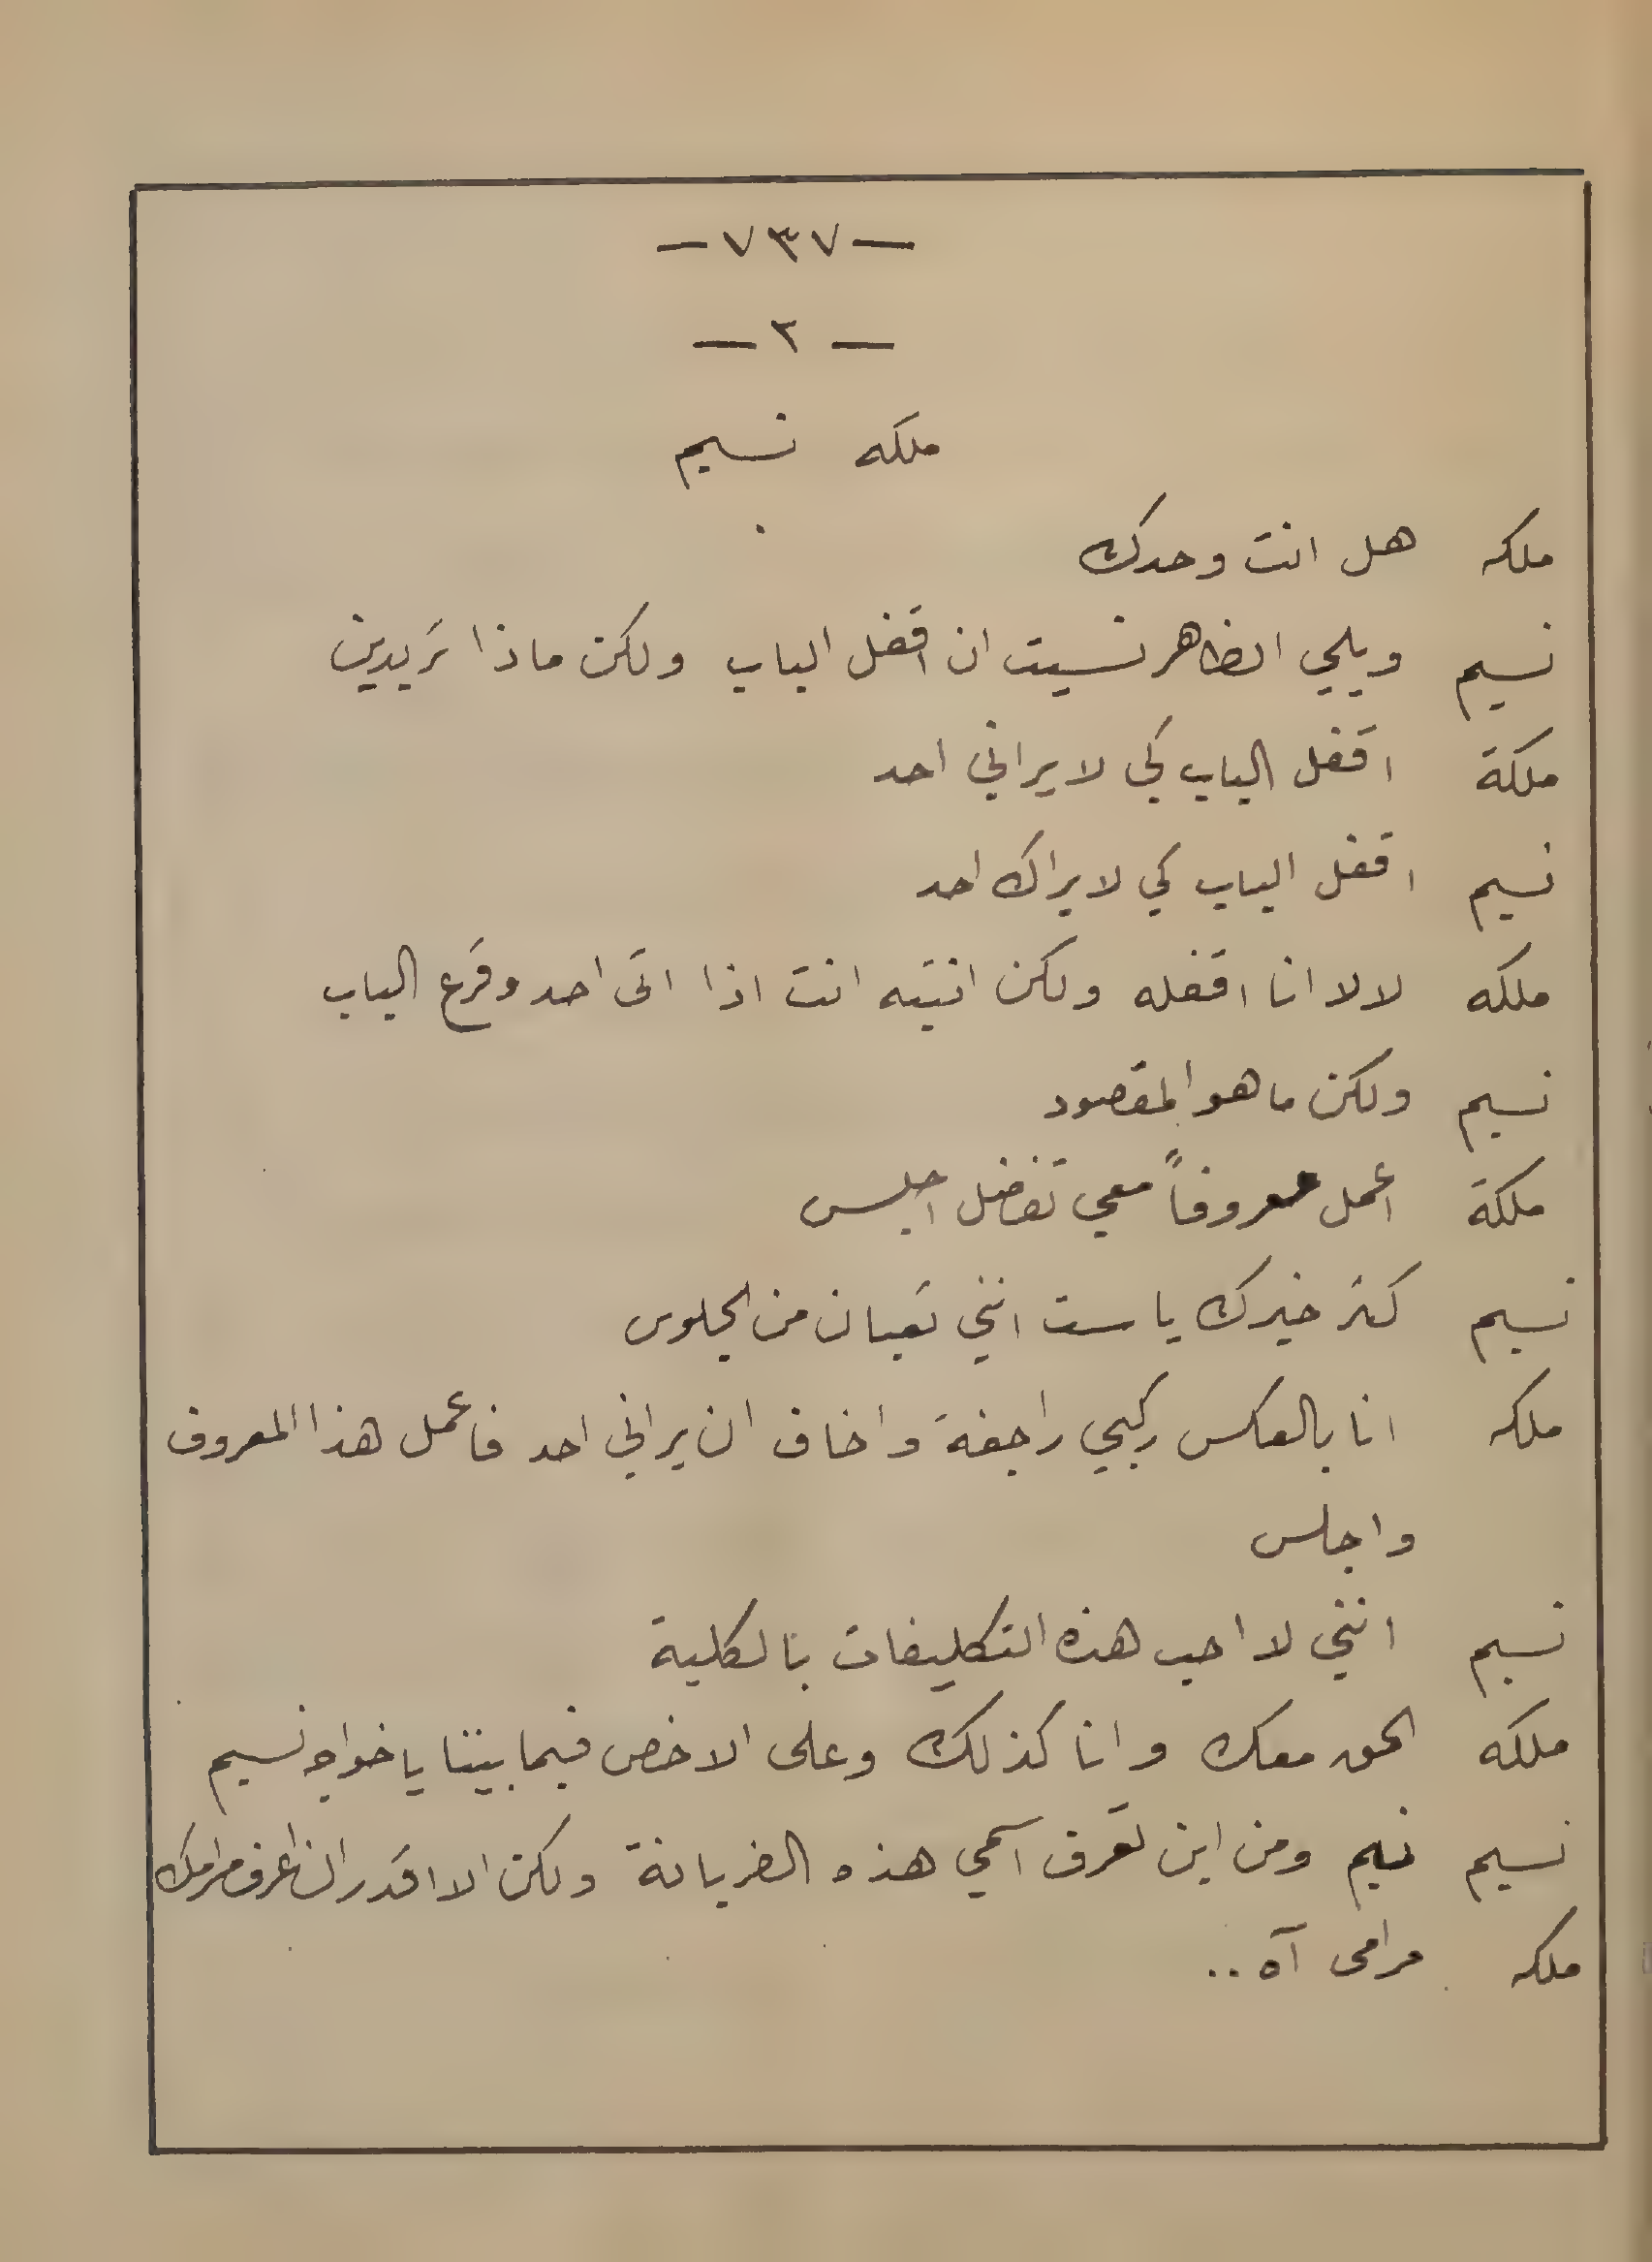 —٧٣٧—
— ٢ —
ملكه نسيم
ملكه هل انت وحدك
نسيم ويلي الظاهر نسيت ان اقفل الباب ولكن ماذا تريدين
ملكة اقفل الباب كي لا يراني احد
نسيم اقفل الباب كي لا يراك احد
ملكه لا لا انا اقفله ولكن انتبه انت اذا اتى احد وقرع الباب
نسيم ولكن ما هو المقصود
ملكة اعمل معروفاً معي تفضل اجلس
نسيم كتر خيرك يا ست انني تعبان من الجلوس
ملكه انا بالعكس ركبي راجفة واخاف ان يراني احد فاعمل هذا المعروف
واجلس
نسيم انني لا احب هذه التكليفات بالكلية
ملكه الحق معك وانا كذلك وعلى الاخص فيما بيننا يا خواجه نسيم
نسيم نسيم ومن اين تعرف اسمي هذه الضربانة ولكن الا اقدر ان اعرف مرامك
ملكه مرامي آه ..